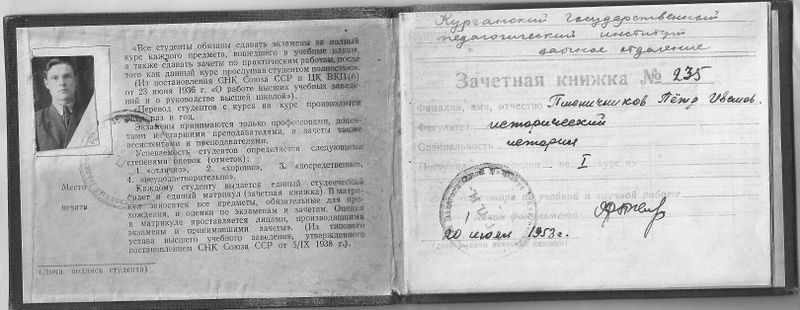 «Все студенты обязаны сдавать экзамены за полный
курс каждого предмета, вошедшего в учебные планы,
а также сдавать зачеты по практическим работам, после
того как данный курс прослушан студентом полностью».
(Из постановления СНК Союза ССР и ЦК ВКП(б)
от 23 июня 1936 г. «О работе высших учебных заведе-
ний и о руководстве высшей школой»).
«Перевод студентов с курса на курс производится
раз в год.
Экзамены принимаются только профессорами, доцен-
тами и старшими преподавателями, а зачеты также
ассистентами и преподавателями.
Успеваемость студентов определяется следующими
степенями оценок (отметок):
1. «отлично», 2. «хорошо», 3. «посредственно»,
4. «неудовлетворительно».
Каждому студенту выдается единый студенческий
билет и единый матрикул (зачетная книжка). В матри-
кул заносятся все предметы, обязательные для про-
хождения, и оценки по экзаменам и зачетам. Оценки
в матрикуле проставляются лицами, производившими
экзамены и принимавшими зачеты». (Из типового
устава высшего учебного заведения, утвержденного
постановлением СНК Союза ССР от 5/IX 1938 г.).
Место
печати
(Личн. подпись студента)
Курганский Государственный
педагогический институт
заочное отделение
Зачетная книжка № 235
Фамилия, имя, отчество Пшеничников Пётр Иванов.
Факультет исторический
Специальность история
I
по учебной и научной работе
факультета
20 июля 1953 г.
(дата выдачи зачетной книжки)